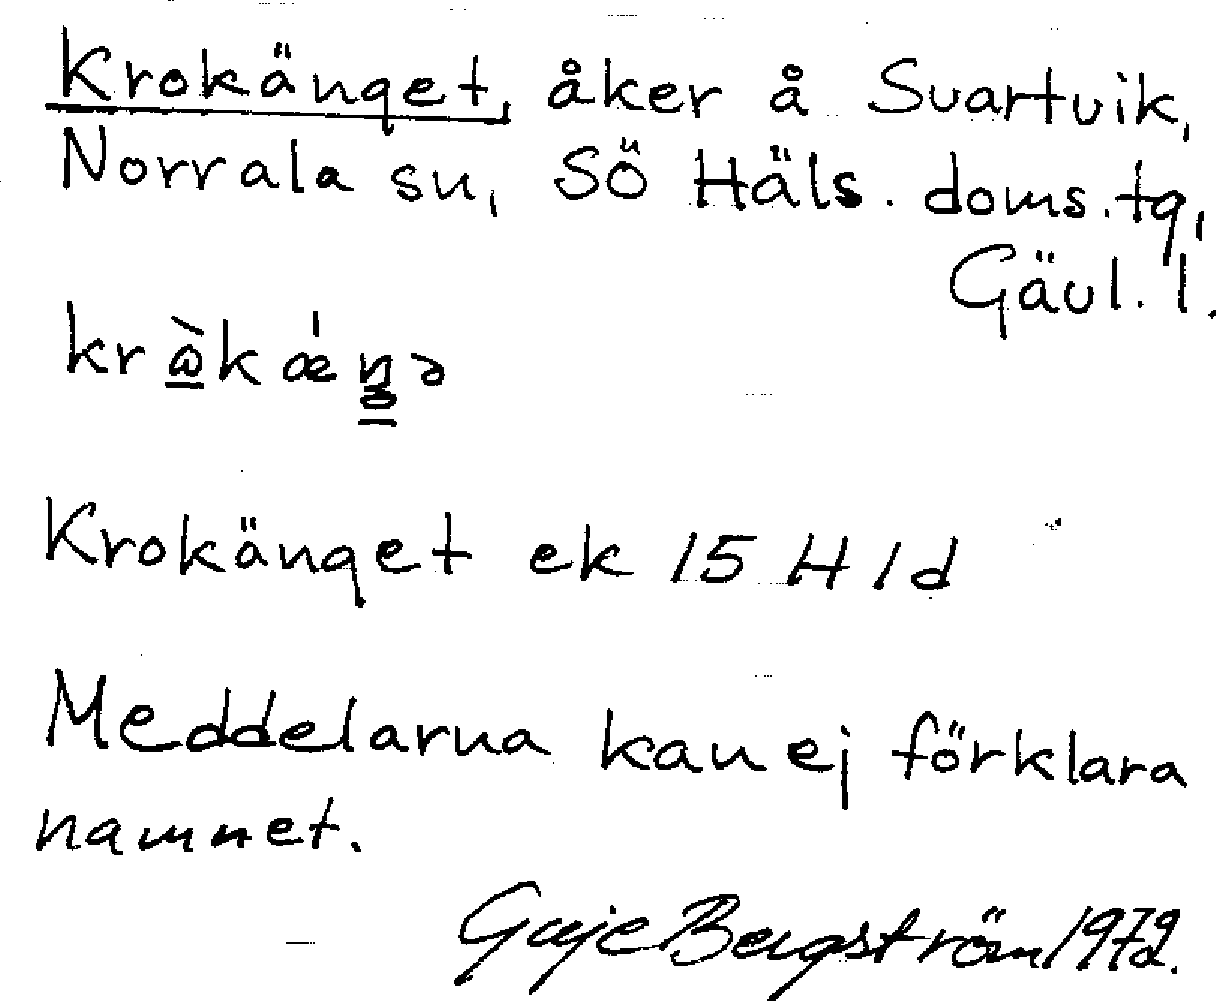 Krokänget, åker å Svartvik,
Norrala sn, SÖ Häls. doms.tg,
Gävl. l.
krὼkǽŋə
Krokänget ek 15 H 1 d
Meddelarna kan ej förklara
namnet.
Bergström 1972.